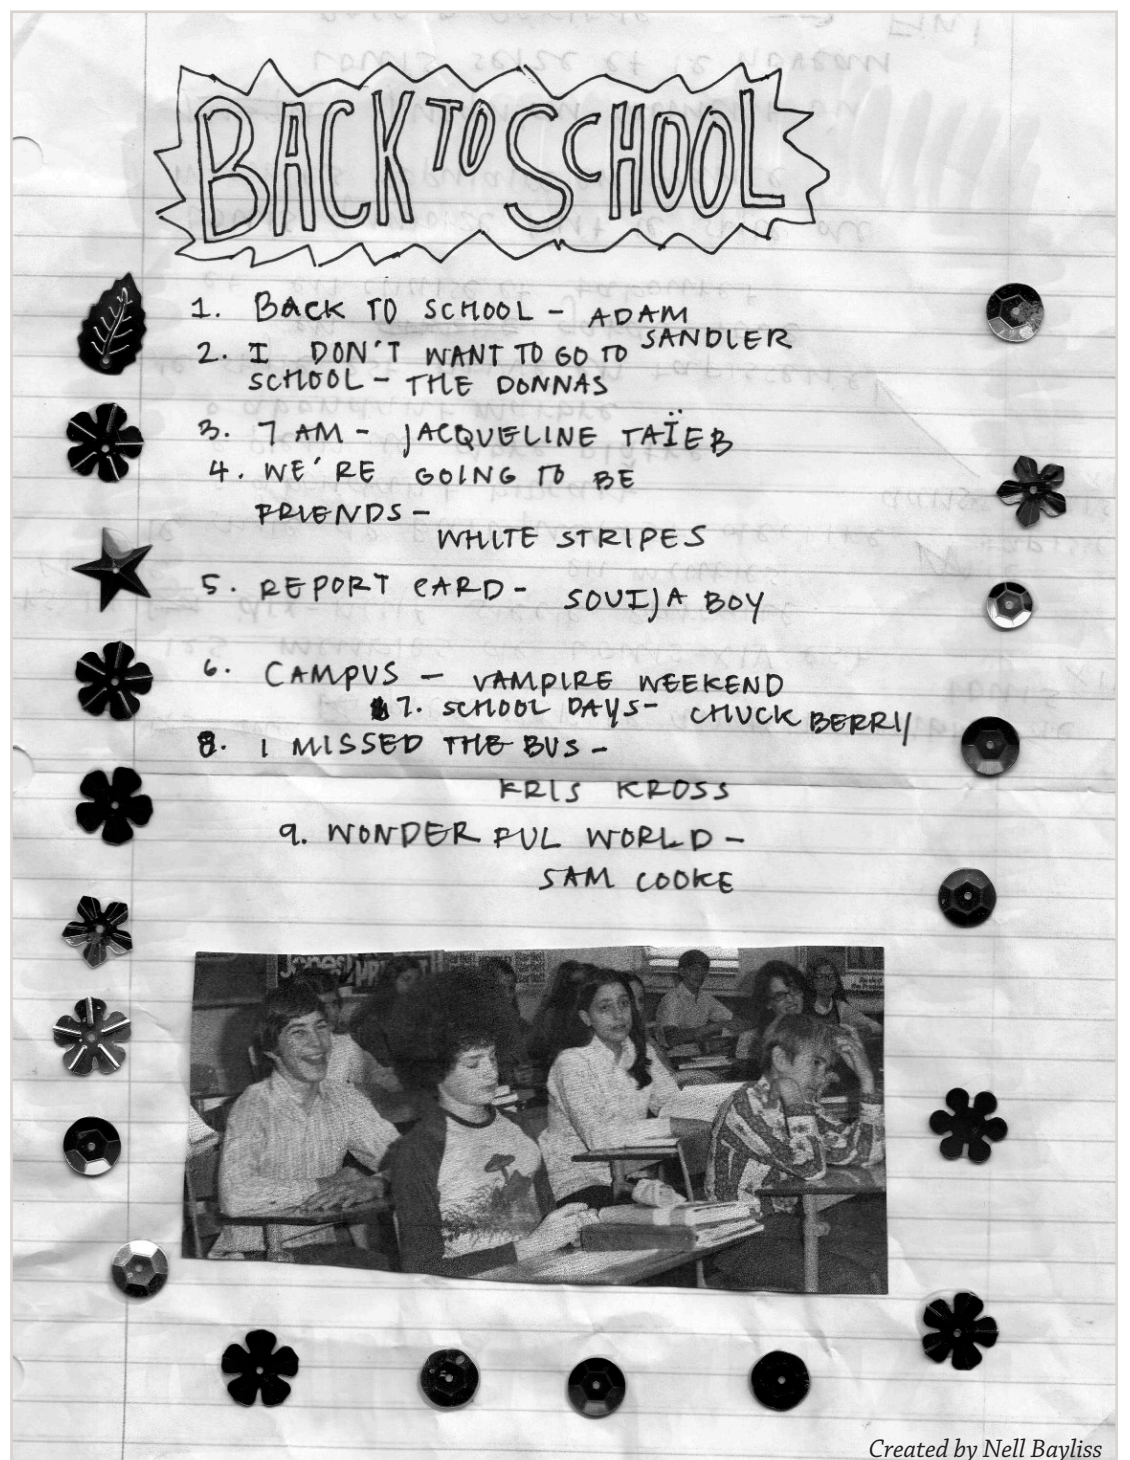 BACK TO SCHOOL
1. BACK TO SCHOOL - ADAM
SANDLER
2. I DON'T WANT TO GO TO
SCHOOL - THE DONNAS
3. 7 AM - JACQUELINE TAÏEB
4. WE'RE GOING TO BE
FRIENDS -
WHITE STRIPES
5. REPORT CARD - SOUIJA BOY
6. CAMPUS - VAMPIRE WEEKEND
7. SCHOOL DAYS - CHUCK BERRY
8. I MISSED THE BUS -
KRIS KROSS
9. WONDERFUL WORLD -
SAM COOKE
Created by Nell Bayliss